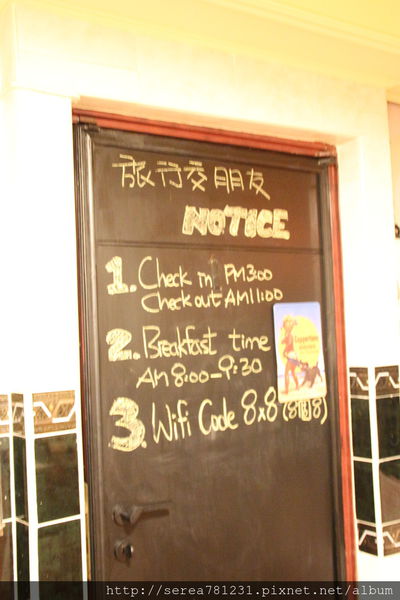 旅行交朋友
NOTICE
1. Check in PM3:00
Check out AM11:00
2. Breakfast time
AM 8:00-9:30
3. Wifi Code 8x8 (8個8)
Coppertone
http://serea781231.pixnet.net/album